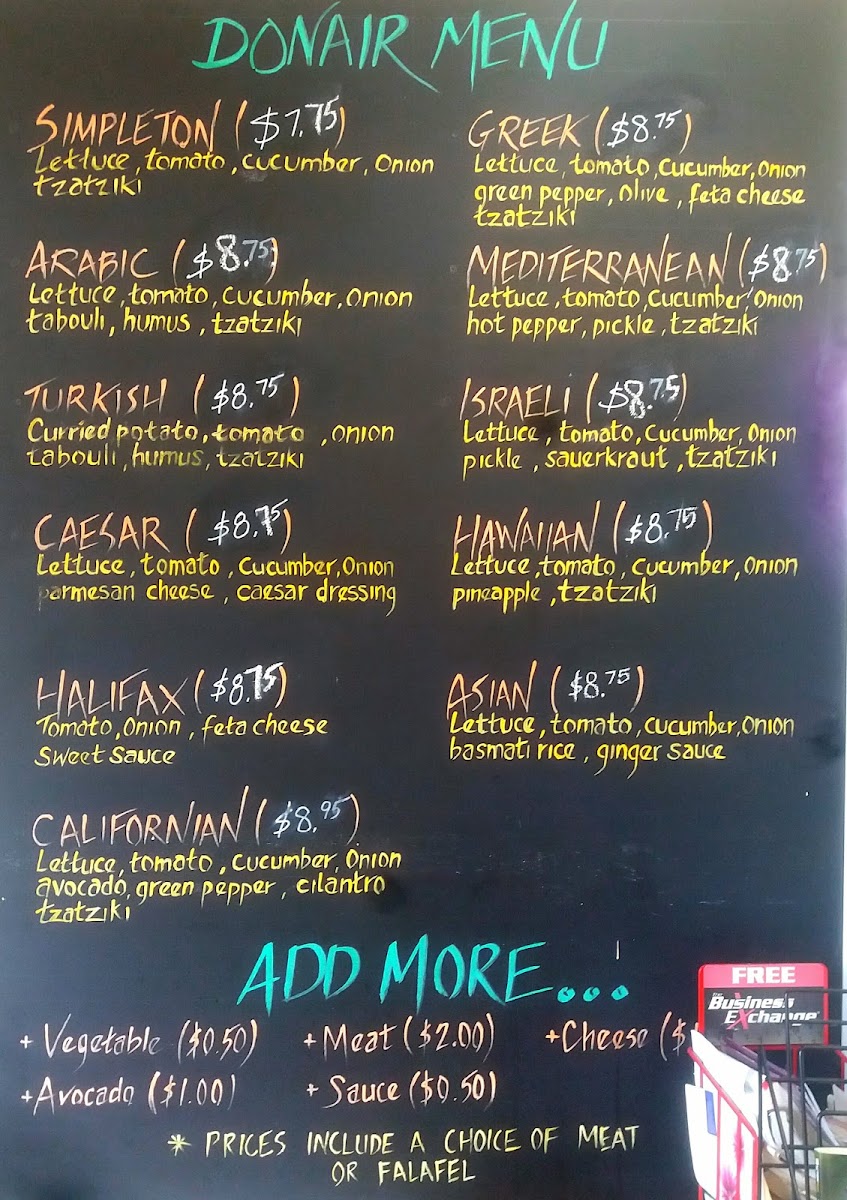 DONAIR MENU
SIMPLETON ($7.75)
Lettuce, tomato, cucumber, onion
tzatziki
ARABIC ($8.75)
Lettuce, tomato, cucumber, onion
tabouli, humus, tzatziki
TURKISH ($8.75)
Curried potato, tomato , onion
tabouli, humus, tzatziki
CAESAR ($8.75)
Lettuce, tomato, cucumber, onion
parmesan cheese, caesar dressing
HALIFAX ($8.75)
Tomato, onion, feta cheese
sweet sauce
CALIFORNIAN ($8.95)
Lettuce, tomato, cucumber, onion
avocado, green pepper, cilantro
tzatziki
GREEK ($8.75)
Lettuce, tomato, cucumber, onion
green pepper, olive, feta cheese
tzatziki
MEDITERRANEAN ($8.75)
Lettuce, tomato, cucumber, onion
hot pepper, pickle, tzatziki
ISRAELI ($8.75)
Lettuce, tomato, cucumber, onion
pickle, sauerkraut, tzatziki
HAWAIIAN ($8.75)
Lettuce, tomato, cucumber, onion
pineapple, tzatziki
ASIAN ($8.75)
Lettuce, tomato, cucumber, onion
basmati rice, ginger sauce
ADD MORE...
+ Vegetable ($0.50) + Meat ($2.00) + Cheese ($
+ Avocado ($1.00) + Sauce ($0.50)
* PRICES INCLUDE A CHOICE OF MEAT
OR FALAFEL
FREE
The Business
Exchange